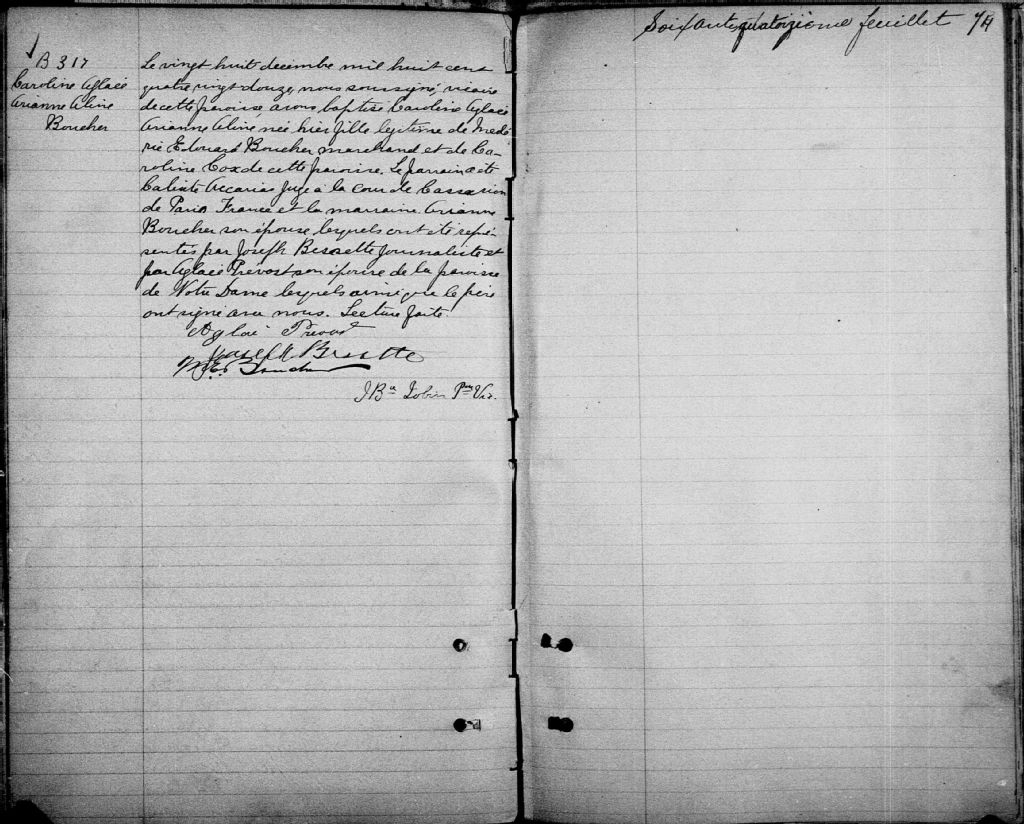 B 317
Caroline Aglaée
Arianne Aline
Boucher
Le vingt huit decembre mil huit cent
quatre vingt douze, nous soussigné, vicaire
de cette paroisse, avons baptisé Caroline Aglaée
Arianne Aline, née hier fille legitime de Medé-
ric Edouard Boucher marchand et de Ca-
roline Cox de cette paroisse. Le parrain a été
Calixte Accarias Juge à la cour de Cassasion
de Paris France et la marraine Arianne
Boucher son épouse lesquels ont été repré-
sentés par Joseph Bessette Journaliste et
par Aglaée Prevost son épouse de la paroisse
de Notre Dame lesquels ainsi que le père
ont signé avec nous. Lecture faite.
Aglaé Prevost
Joseph Bessette
M. E. Boucher
J Bte Tobin Ptre Vic.
Soixante quatorzième feuillet 74